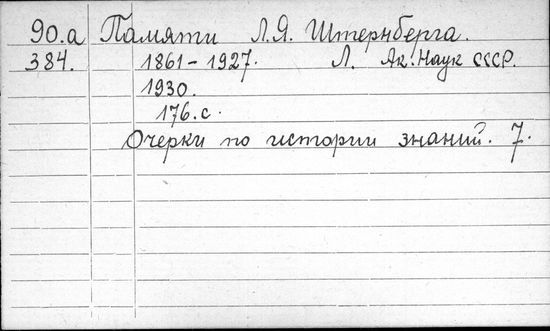 90.а Памяти Л.Я. Штернберга.
384. 1861-1927. Л. Ак. Наук СССР.
1930.
176.с.
Очерки по истории знаний. 7.